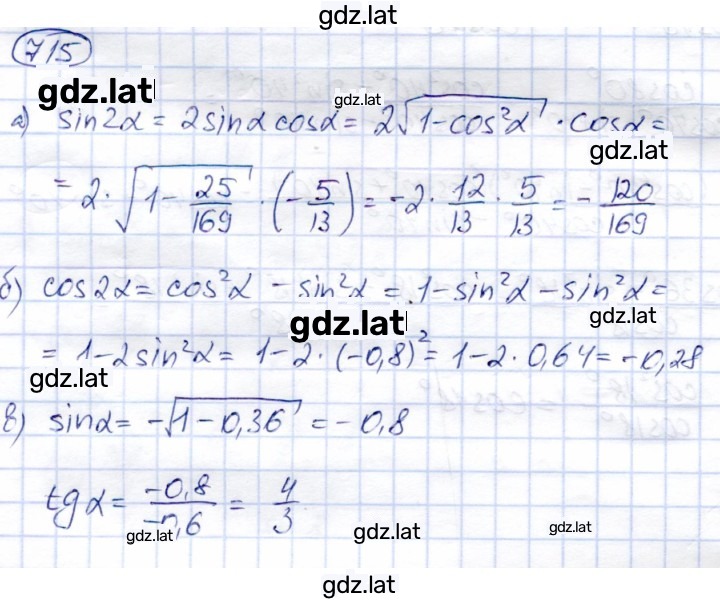 gdz.lat
715
gdz.lat
gdz.lat
а) sin2α = 2sinα cosα = 2√(1-cos²α) · cosα =
gdz.lat
= 2·√(1 - 25/169) · (-5/13) = -2 · 12/13 · 5/13 = - 120/169
б) cos2α = cos²α - sin²α = 1-sin²α - sin²α =
gdz.lat
gdz.lat
= 1-2sin²α = 1-2·(-0,8)² = 1-2·0,64 = -0,28
gdz.lat
в) sinα = -√(1-0,36) = -0,8
tgα = -0,8/-0,6 = 4/3
gdz.lat
gdz.lat
gdz.lat
gdz.lat